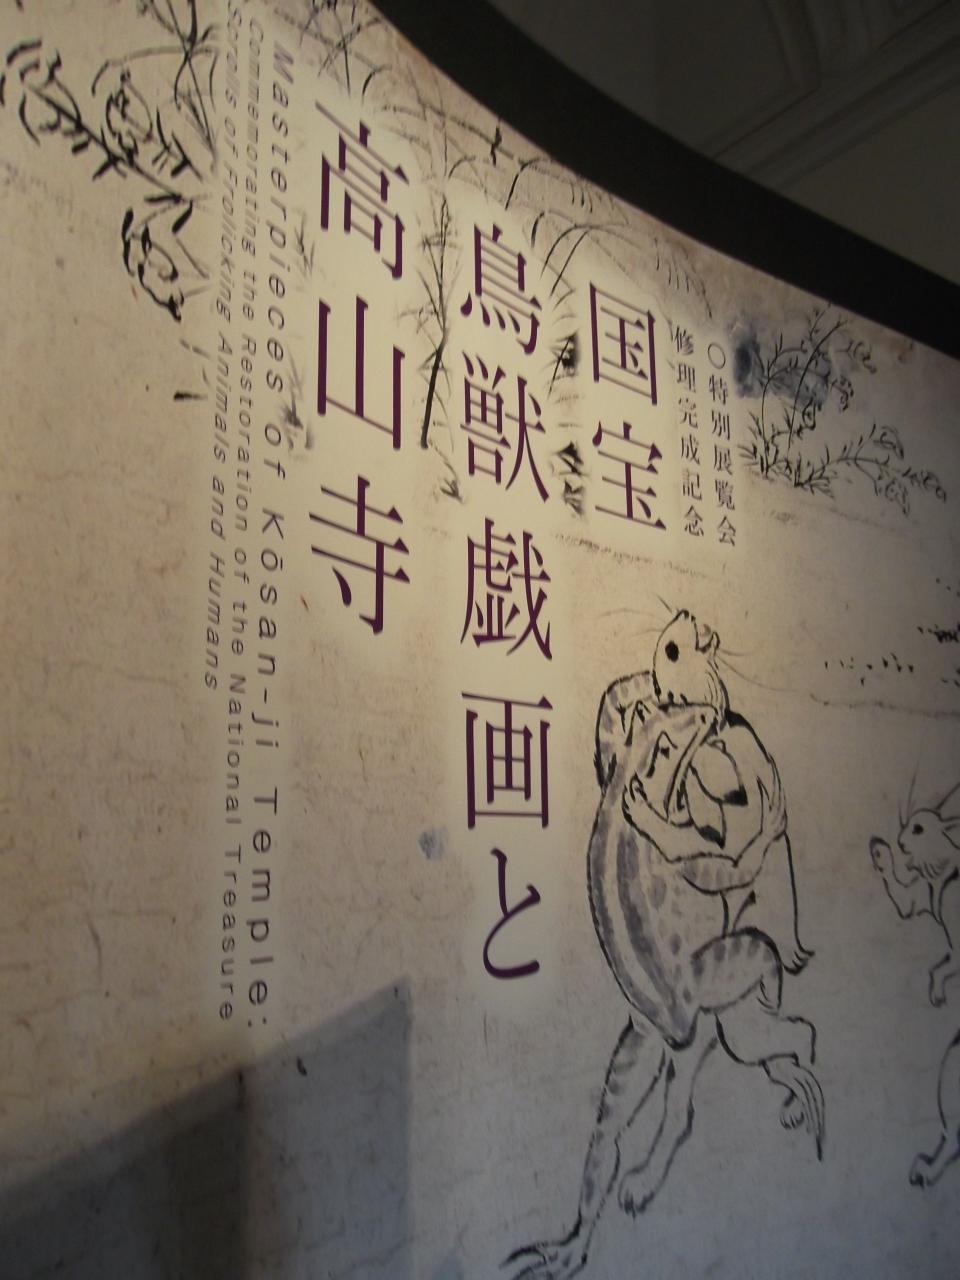 〇特別展覧会
修理完成記念
国宝
鳥獣戯画と
高山寺
Masterpieces of Kōsan-ji Temple:
Commemorating the Restoration of the National Treasure
Scrolls of Frolicking Animals and Humans